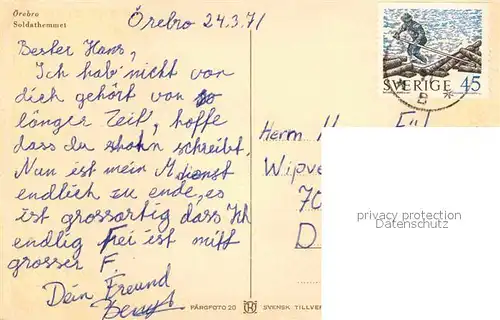 Örebro
Soldathemmet
Örebro 24.3.71
Bester Hans,
Ich hab' nicht von
dich gehört von so
länger Zeit, hoffe
dass du shohn schreibt.
Nun ist mein Mdienst
endlich zu ende, es
ist grossartig dass Ich
endlig frei ist mitt
grosser F.
Dein Freund
Bengt
SVERIGE 45
B
Herrn H
Wipve
70
D
privacy protection
Ansichtskarten-Center.de
FÄRGFOTO 20 SVENSK TILLVER